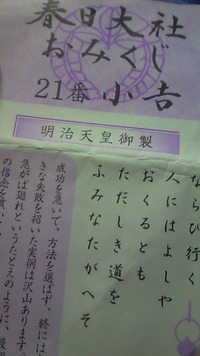 春日大社
おみくじ
21番 小吉
明治天皇御製
ならび行く
人にはよしや
おくるとも
ただしき道を
ふみなたがへそ
成功を急いで、方法を選ばず、終には
きな失敗を招いた実例は沢山あります。
急がば廻れというたとえのように、
の信念を貫